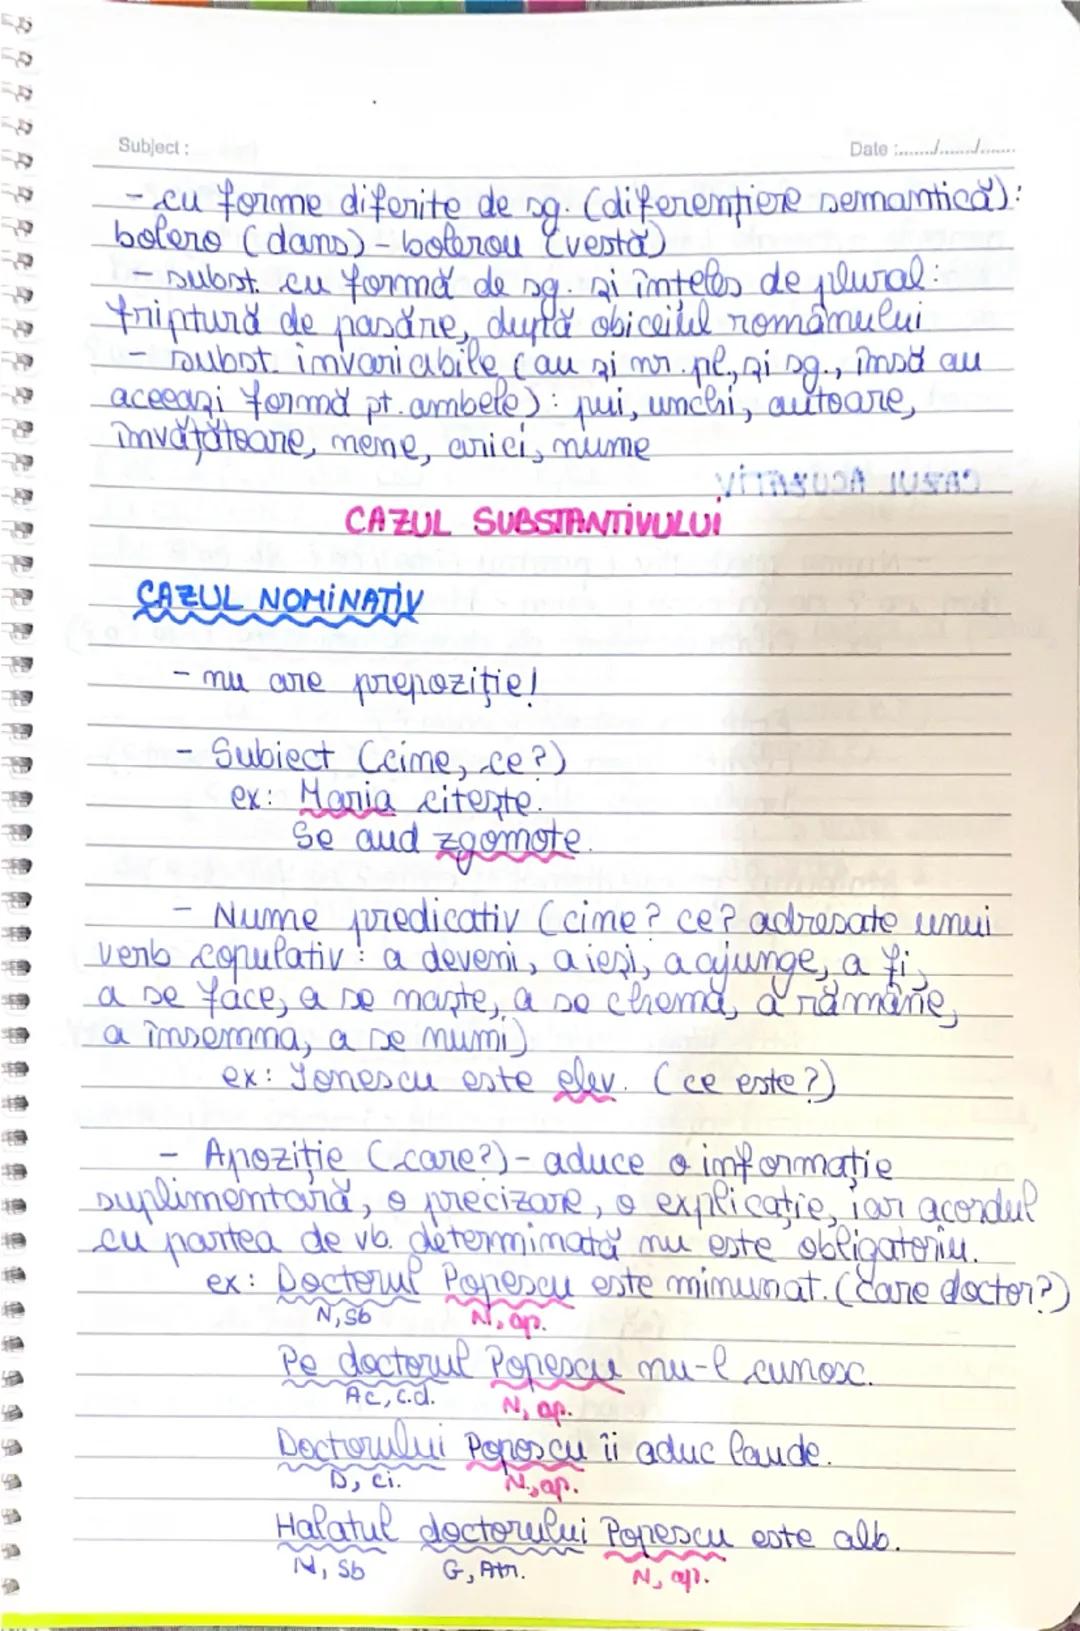 Subject :
Date :......./......./.......
- cu forme diferite de sg. (diferențiere semantică):
bolero (dans) - bolerou (vestă)
- subst. cu formă de sg. și înțeles de plural:
friptură de pasăre, după obiceiul românului
- subst. invariabile (au și nr. pl, și sg., însă au
aceeași formă pt. ambele): pui, unchi, autoare,
învățătoare, nume, arici, nume
CAZUL SUBSTANTIVULUI
CAZUL NOMINATIV
- nu are prepoziție!
- Subiect (cine, ce?)
ex: Maria citește.
Se aud zgomote.
- Nume predicativ (cine? ce? adresate unui
verb copulativ: a deveni, a ieși, a ajunge, a fi,
a se face, a se naște, a se chema, a rămâne,
a însemna, a se numi)
ex: Ionescu este elev. (ce este?)
- Apoziție (care?) - aduce o informație
suplimentară, o precizare, o explicație, iar acordul
cu partea de vb. determinată nu este obligatoriu.
ex: Doctorul Popescu este minunat. (care doctor?)
N, Sb N, ap.
Pe doctorul Popescu nu-l cunosc.
Ac, c.d. N, ap.
Doctorului Popescu îi aduc laude.
D, ci. N, ap.
Halatul doctorului Popescu este alb.
N, Sb G, Atr. N, ap.